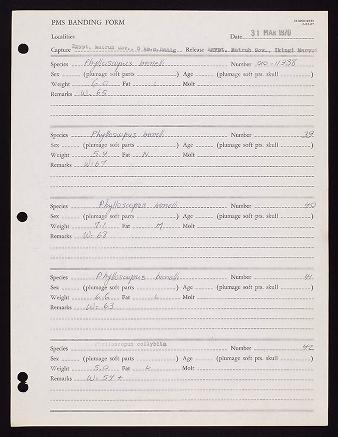 PMS BANDING FORM
Localities Date 31 MAR 1970
Capture Egypt, Matruh Gov., Release Egypt, Matruh Gov., Ikingi Maryut
Species Phylloscopus boneli Number 90-11738
Sex (plumage soft parts ) Age (plumage soft pts. skull )
Weight 6.0 Fat L Molt
Remarks W-65
Species Phylloscopus boneli Number 39
Sex (plumage soft parts ) Age (plumage soft pts. skull )
Weight 5.4 Fat N Molt
Remarks W-67
Species Phylloscopus boneli Number 40
Sex (plumage soft parts ) Age (plumage soft pts. skull )
Weight 7.1 Fat M Molt
Remarks W-68
Species Phylloscopus boneli Number 41
Sex (plumage soft parts ) Age (plumage soft pts. skull )
Weight 6.6 Fat L Molt
Remarks W-63
Species Phylloscopus collybita Number 42
Sex (plumage soft parts ) Age (plumage soft pts. skull )
Weight 5.0 Fat L Molt
Remarks W-54+